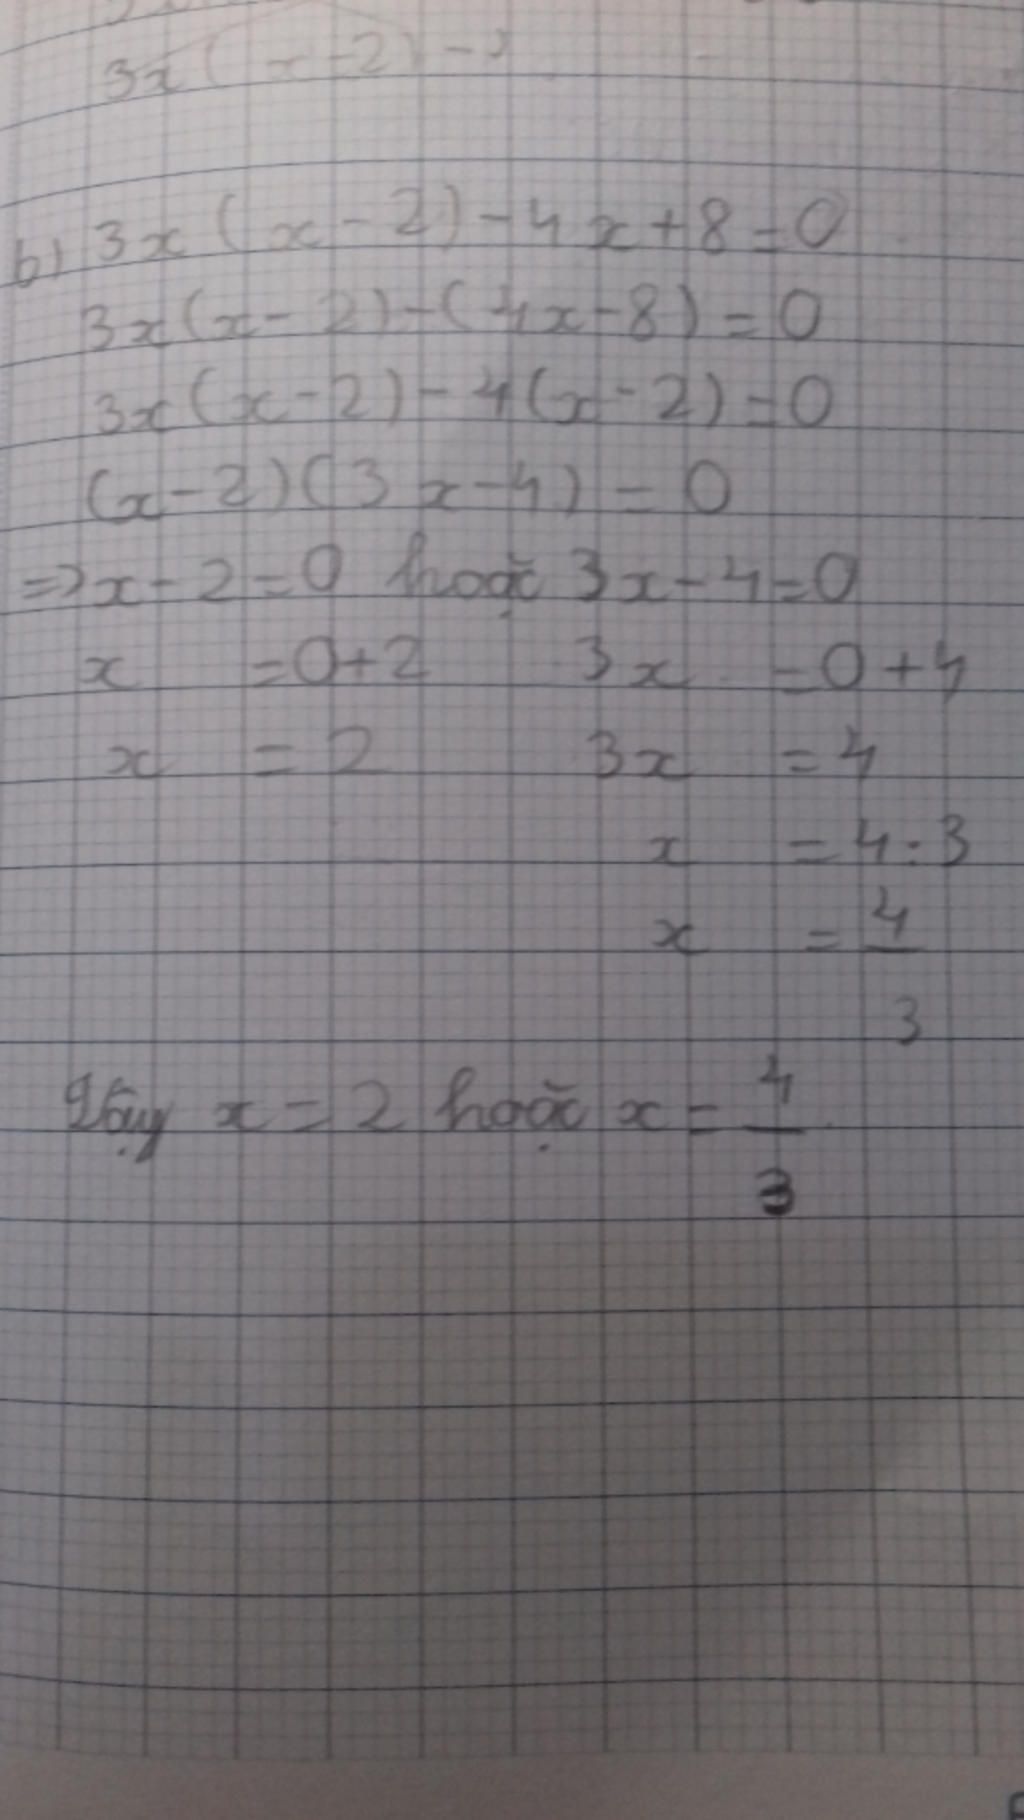 3x(x-2)-
b) 3x(x-2)-4x+8=0
3x(x-2)-(4x-8)=0
3x(x-2)-4(x-2)=0
(x-2)(3x-4)=0
=>x-2=0 hoặc 3x-4=0
x =0+2 3x =0+4
x =2 3x =4
x =4:3
x =4/3
Vậy x=2 hoặc x=4/3